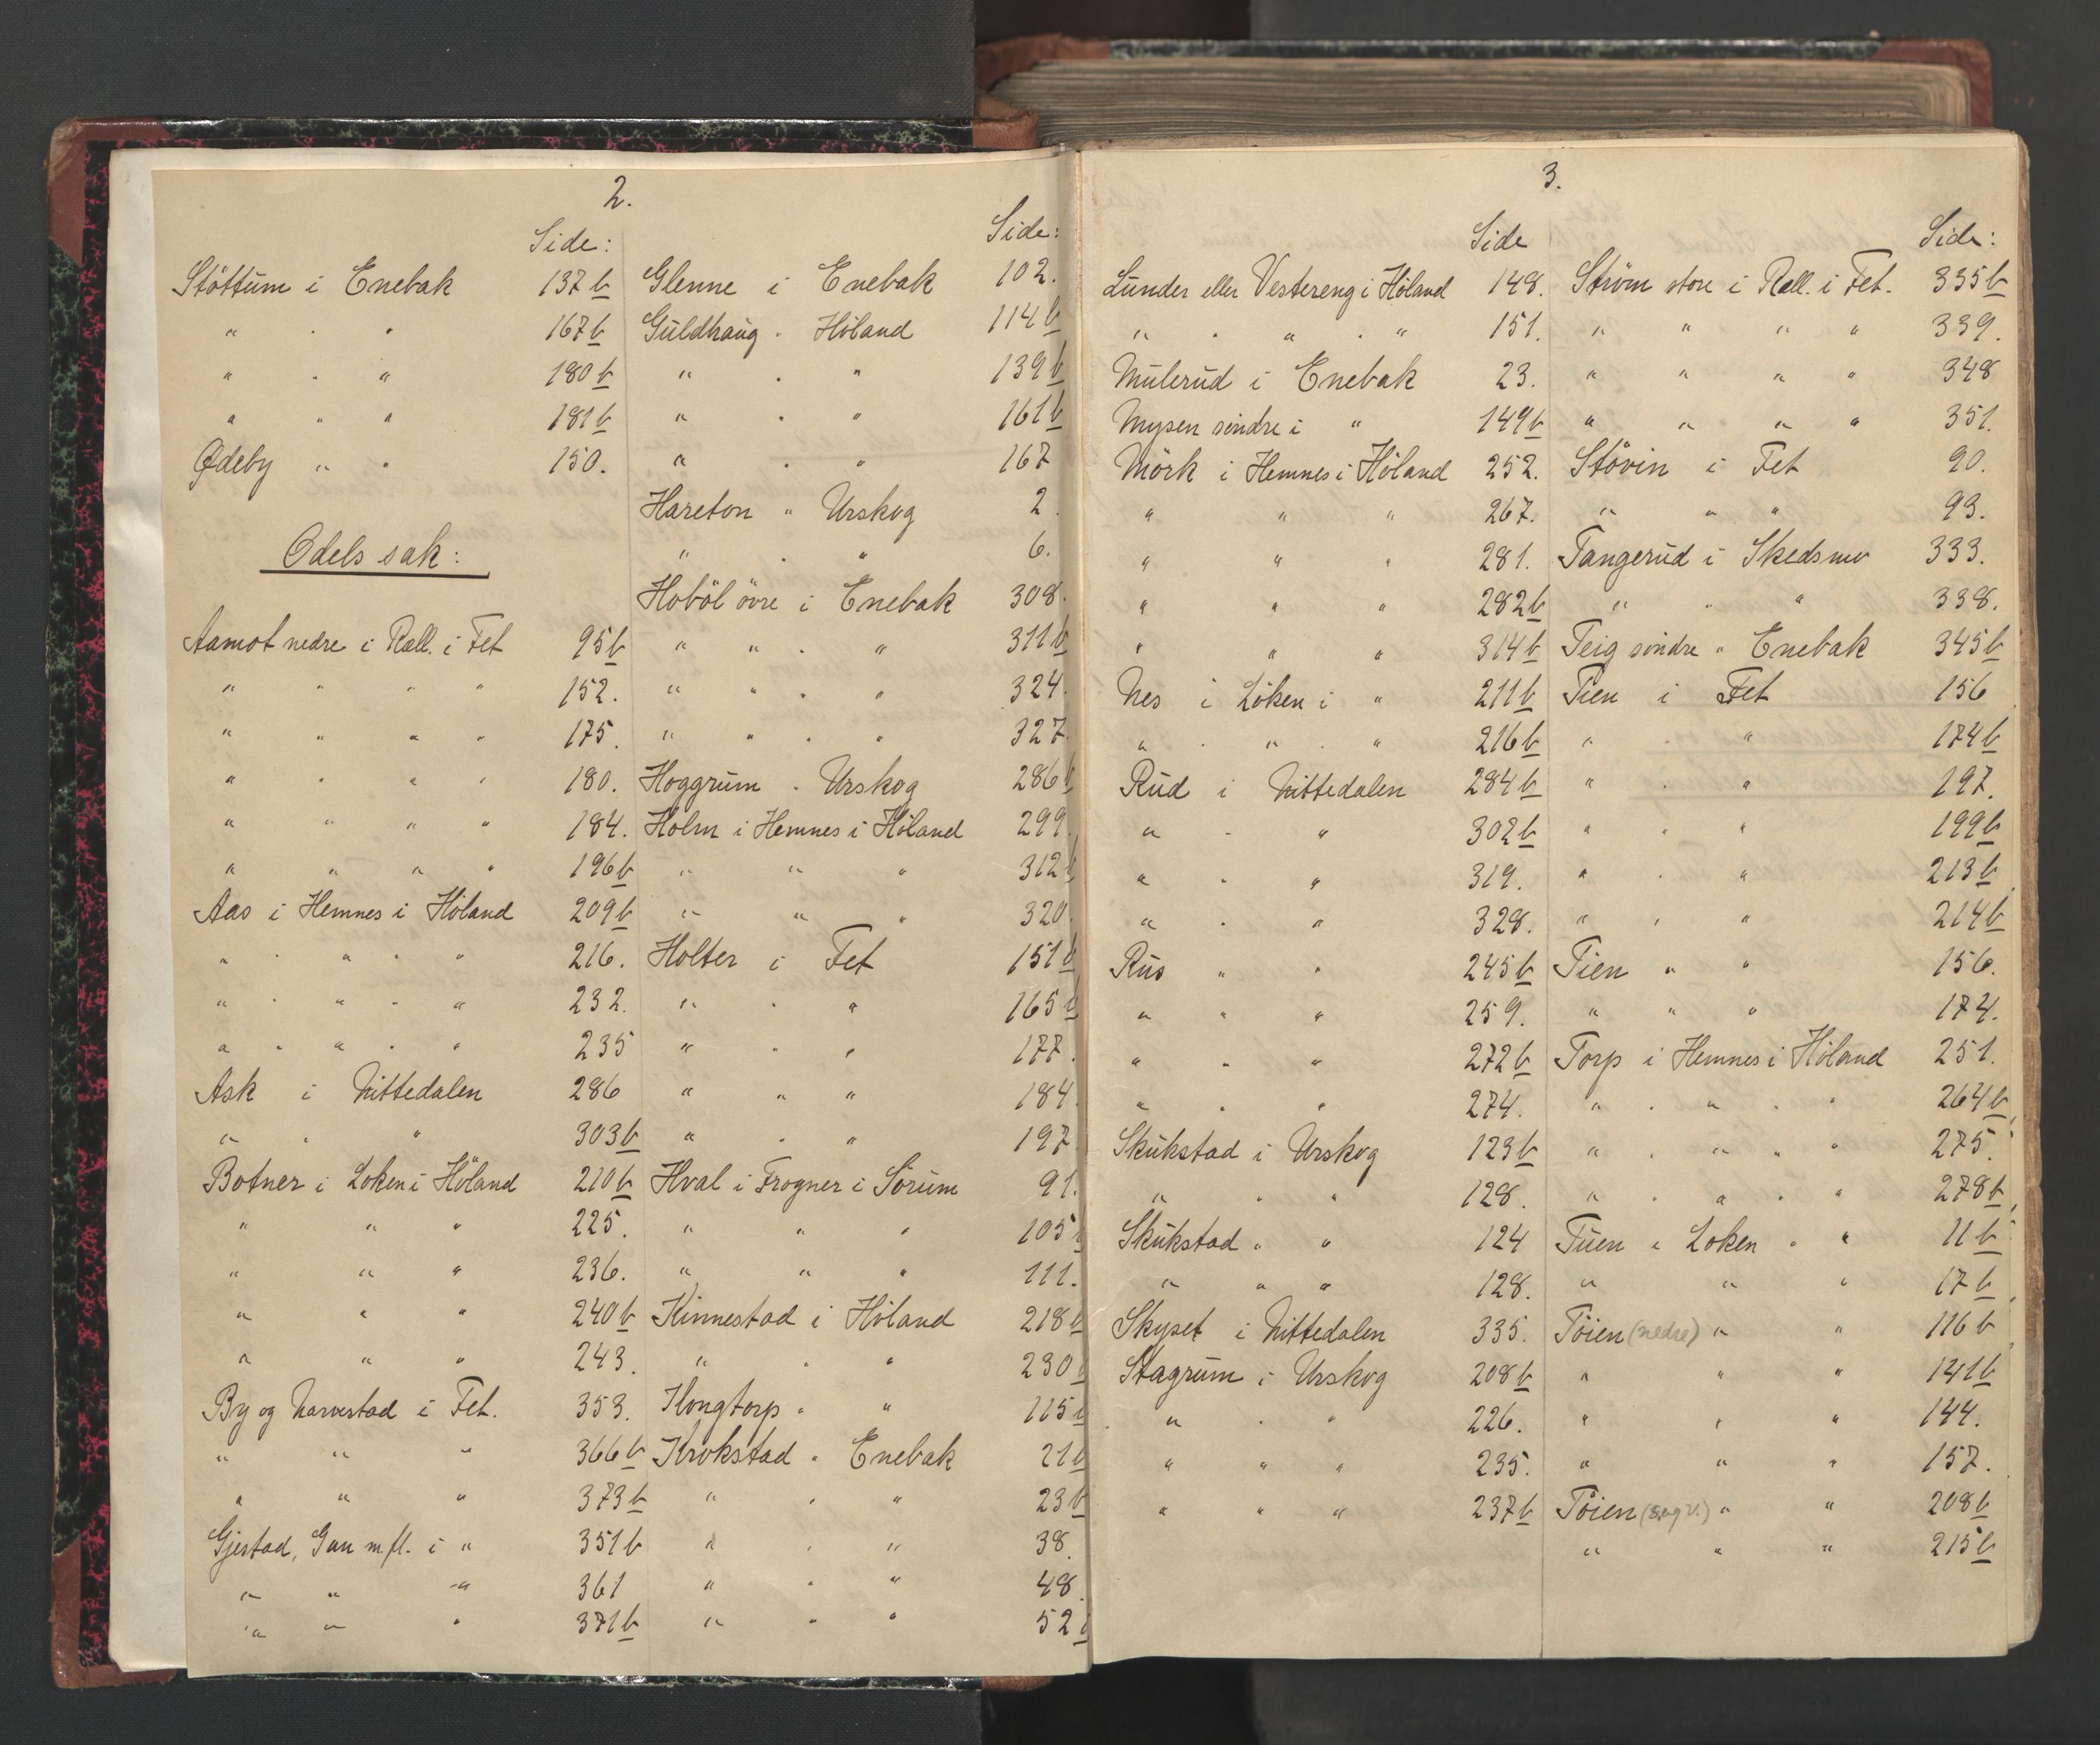 2.
Side:
Stöttum i Enebak 137 b
" . " 167 b
" . " 180 b
" " " 181 b
Ødeby " " 150.
Odels sak:
Aamot nedre i Ræll. i Fet 95 b
" " " " 152.
" " " " 175.
" " " " 180.
" " " " 184.
" " " " 196 b
Aas i Hemnes i Höland 209 b
" . " . " 216.
" . " . " 232.
" . " . " 235
Ask i Nittedalen 286
" . " 303 b
Botner i Löken i Höland 210 b
" " " 225.
" " " 236.
" " " 240 b
" " " 243.
By og Narvestad i Fet. 353.
" " " 366 b
" " " 373 b
Gjestad, Gan m.fl. i " 351 b
" " " 361
" " " 371 b
Side:
Glenne i Enebak 102.
Guldhaug . Höland 114 b
" . " 139 b
" . " 161 b
" . " 167
Hareton " Urskog 2.
" . " 6.
Höböl övre i Enebak 308.
" " . " 311 b
" " . " 324.
" " . " 327
Hoggrum . Urskog 286 b
Holm i Hemnes i Höland 299.
" " " 312 b
" " " 320.
Holter i Fet 151 b
" . " 165 b
" . " 177.
" " " 184.
" . " 197
Hval i Frogner i Sörum 91.
" " " 105 b
" " " 111.
Kinnestad i Höland 218 b
" . " 230 b
Kongtorp . " 115 b
Krokstad . Enebak 21 b
" . " 23 b
" . " 38.
" . " 48.
" . " 52 b
3.
Side
Lunder eller Vestereng i Höland 148.
" . " . " 151.
Mulerud i Enebak 23.
Mysen söndre i " 149 b
Mörk i Hemnes i Höland 252.
" " " 267.
" " " 281.
" " " 282 b
" " " 314 b
Nes i Löken i " 211 b
" . " . " 216 b
Rud i Nittedalen 284 b
" . " 302 b
" . " 319.
" . " 328.
Rus " . 245 b
" " " 259.
" . " 272 b
" . " 274.
Skukstad i Urskog 123 b
" . " 128.
Skukstad . " 124
" " " 128.
Skyset i Nittedalen 335.
Stagrum i Urskog 208 b
" . " 226.
" " " 235.
" " " 237 b
Side:
Ström store i Ræll. i Fet. 335 b
" " " " 339.
" " " " 348
" " " " 351.
Stövin i Fet 90.
" " " 93.
Tangerud i Skedsmo 333.
" . " 338.
Teig söndre " Enebak 345 b
Tien i Fet 156
" . " 174 b
" . " 197.
" . " 199 b
" . " 213 b
" . " 214 b
Tien " " 156.
" " " 174.
Torp i Hemnes i Höland 251.
" . " . " 264 b
" . " . " 275.
" . " . " 278 b
Tuen i Löken . " 11 b
" " " 17 b
Töien (nedre) " " 116 b
" " " 141 b
" " " 144.
" " " 157.
Töien " " 208 b
" " " 215 b